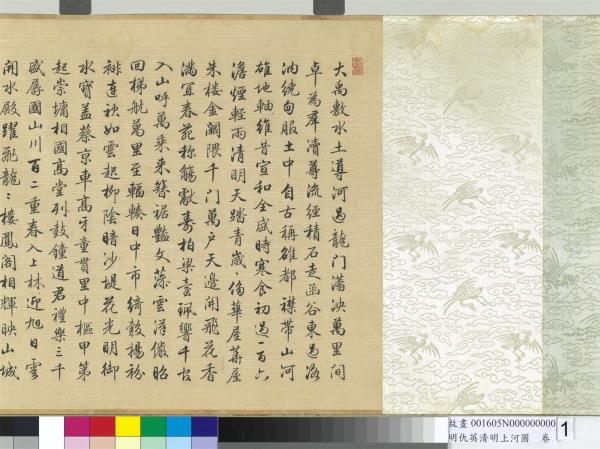 大禹敷水土導河過龍門潘泱萬里間
卓為羣瀆尊流經積石走函谷東過洛
汭繞甸服土中自古稱雒都襟帶山河
雄地軸維昔宣和全盛時寒食初過一百六
澹煙輕雨清明天踏青歲傷華屋屋
朱樓金闕隈千門萬戶天邊開飛花香
滿宜春苑称觴獻壽柏梁臺珮響千官
入山呼萬乘来簪裾豔文藻雲漢徽昭
回梯航萬里至輻輳日中市綺縠揚紛
裶連袂如雲起柳陰暗沙堤花光明御
水寶盖蔡京車高牙童貫里中樞甲第
起崇墉相國高堂列鼓鐘道君禮樂三千
盛孱國山川百二重春入上林迎旭日雲
開水殿躍飛龍〻樓鳳閣相輝映山城
故畫 001605N000000000
明仇英清明上河圖 卷
1